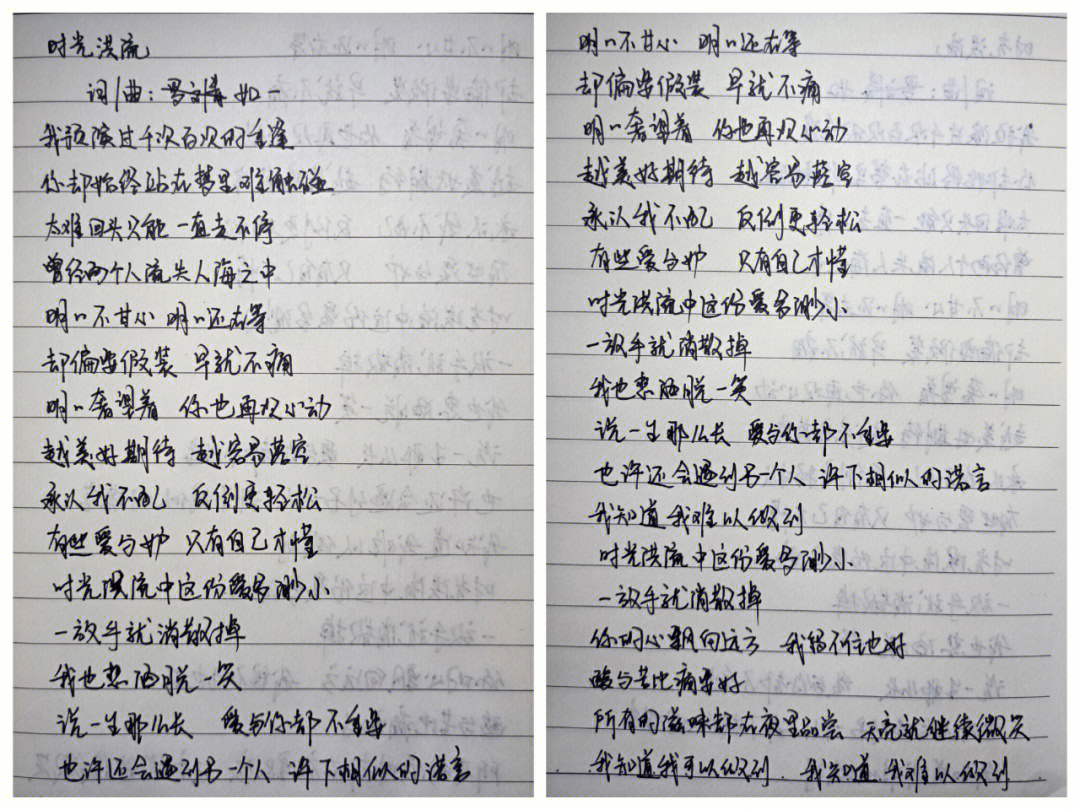 时光洪流
词/曲：罗文清如一
我预演过千次百次的重逢
你却始终站在梦里难触碰
太难回头只能一直走不停
曾经两个人流失人海之中
明〃不甘心 明〃还在等
却偏要假装 早就不痛
明〃奢望着 你也再次心动
越美好期待 越容易落空
承认我不配 反倒更轻松
有些爱与妒 只有自己才懂
时光洪流中这份爱多渺小
一放手就消散掉
我也想洒脱一笑
说一生那么长 爱与你都不重要
也许还会遇到另一个人 许下相似的诺言
明〃不甘心 明〃还在等
却偏要假装 早就不痛
明〃奢望着 你也再次心动
越美好期待 越容易落空
承认我不配 反倒更轻松
有些爱与妒 只有自己才懂
时光洪流中这份爱多渺小
一放手就消散掉
我也想洒脱一笑
说一生那么长 爱与你都不重要
也许还会遇到另一个人 许下相似的诺言
我知道我难以做到
时光洪流中这份爱多渺小
一放手就消散掉
你的心飘向远方 我留不住也好
酸与苦比痛要好
所有的滋味都在夜里品尝 天亮就继续微笑
我知道我可以做到 我知道 我难以做到